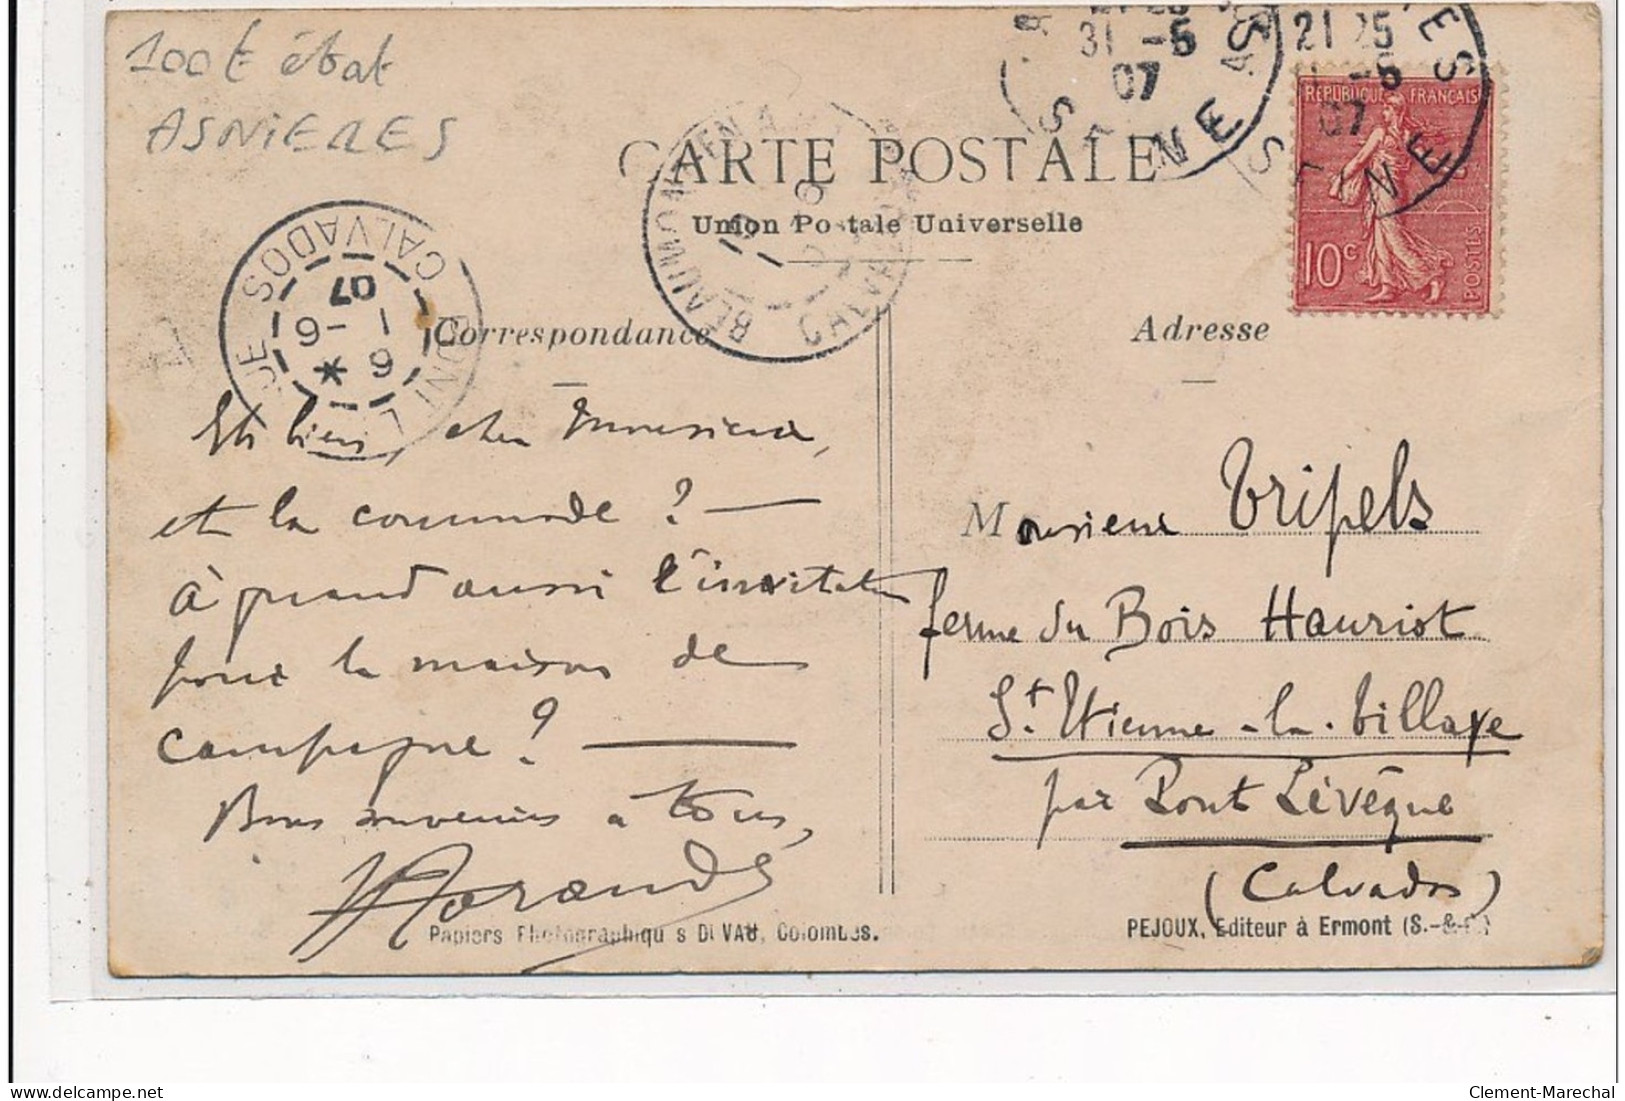 100E état
ASNIERES
31 -5
07
SEINE AS
21 25
-5
07
SEINE
RES
REPUBLIQUE FRANÇAISE
10c
POSTES
CARTE POSTALE
Union Postale Universelle
BEAUMONT EN A
CALVADOS
PONT L JE
CALVADOS
6 *
6 -
07
Correspondance
Adresse
Eh bien, cher Monsieur,
et la commode ? —
à quand aussi l'invitation
pour la maison de
campagne ? —
Bons souvenirs à tous,
Monsieur Tripels
ferme du Bois Hauriot
St Etienne-la-Tillaye
par Pont Lévêque
(Calvados)
Papiers Photographiqu s DI VAU, Colombes.
PEJOUX, Editeur à Ermont (S.-&-O.)
Clement-Marechal